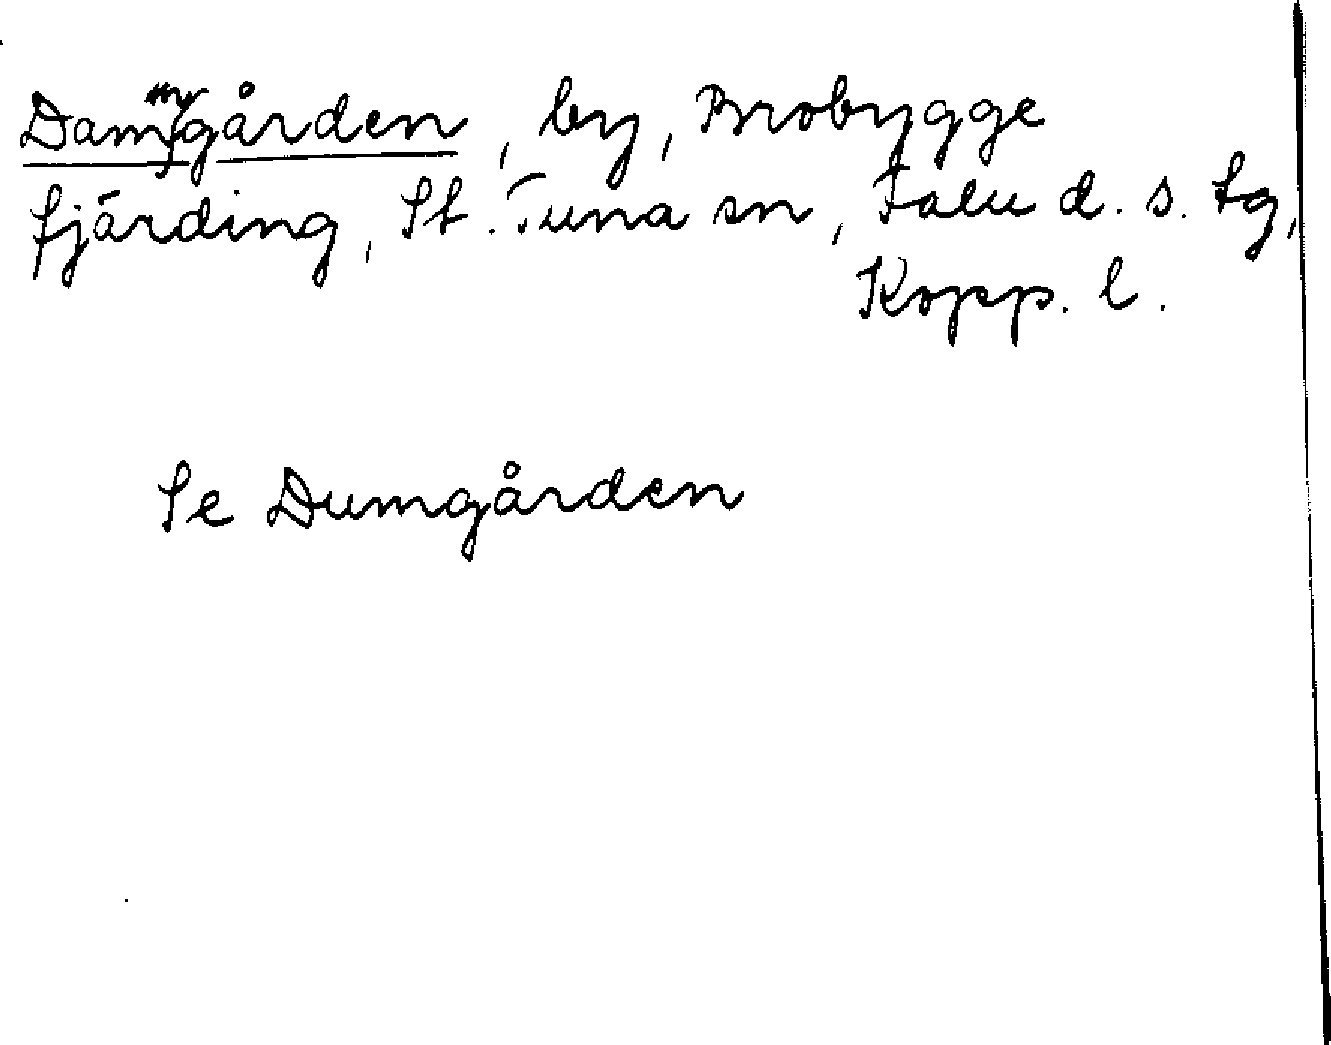 Dammgården, by, Brobygge
fjärding, St. Tuna sn, Falu d. s. tg,
Kopp. l.
Se Dumgården